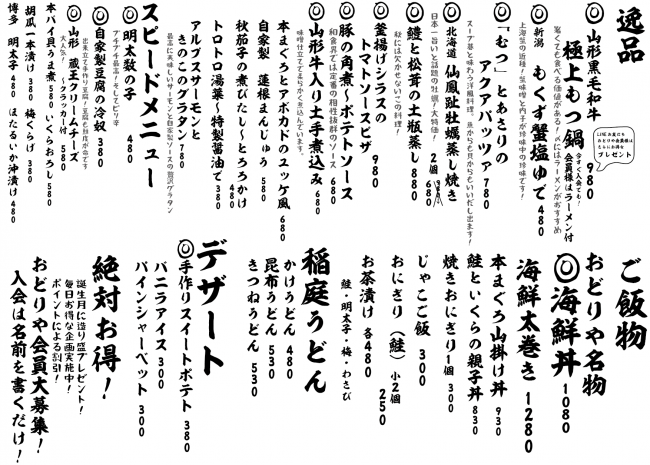 逸品
◎山形黒毛和牛
極上もつ鍋 980
今すぐ入会でも!
会員様はラーメン付
寒くても食べる価値がある!〆にはラーメンがおすすめ
LINEお友だち
おどりや会員様は
さらにお得な
プレゼント
◎新潟 もくず蟹塩ゆで 480
上海蟹の近種!蟹味噌と内子が珍味中の珍味です!
◎「むつ」とあさりの
アクアパッツァ 780
スープ基と味わう洋風料理。魚からも貝からもいいだし出ます!
◎北海道 仙鳳趾牡蠣蒸し焼き
2個 680
日本一旨いと話題の牡蠣!大特価!
◎鱧と松茸の土瓶蒸し 880
秋には欠かせないこの料理!
◎釜揚げシラスの
トマトソースピザ 980
◎豚の角煮〜ポテトソース
和食界では定番の相性抜群のソース 680
◎山形牛入り土手煮込み 680
味噌仕立てで柔らかく煮込んでいます。
本まぐろとアボカドのユッケ風 680
自家製 蓮根まんじゅう 580
秋茄子の煮びたし〜とろろかけ 480
トロトロ湯葉〜特製醤油で 380
アルプスサーモンと
きのこのグラタン 780
最高に美味しいサーモンと自家製ソースの贅沢グラタン
スピードメニュー
◎明太数の子 480
プチプチ最高!そしてピリ辛
◎自家製豆腐の冷奴 380
出来立て手作り豆腐!豆腐も鮮度が命です
◎山形 蔵王クリームチーズ
〜クラッカー付 580
大人気!
本バイ貝うま煮 580 いくらおろし 580
胡瓜一本漬け 380 梅くらげ 380
博多 明太子 480 ほたるいか沖漬け 480
ご飯物
おどりや名物
◎海鮮丼 1080
海鮮太巻き 1280
本まぐろ山掛け丼 930
鮭といくらの親子丼 830
焼きおにぎり1個 300
じゃこご飯 300
おにぎり(鮭) 小2個 250
お茶漬け 各480
鮭・明太子・梅・わさび
稲庭うどん
かけうどん 480
昆布うどん 530
きつねうどん 530
デザート
◎手作りスイートポテト 380
バニラアイス 300
パインシャーベット 300
絶対お得!
誕生月に造り盛プレゼント!
毎日お得な企画実施中!
ポイントによる割引!
おどりや会員大募集!
入会は名前を書くだけ!